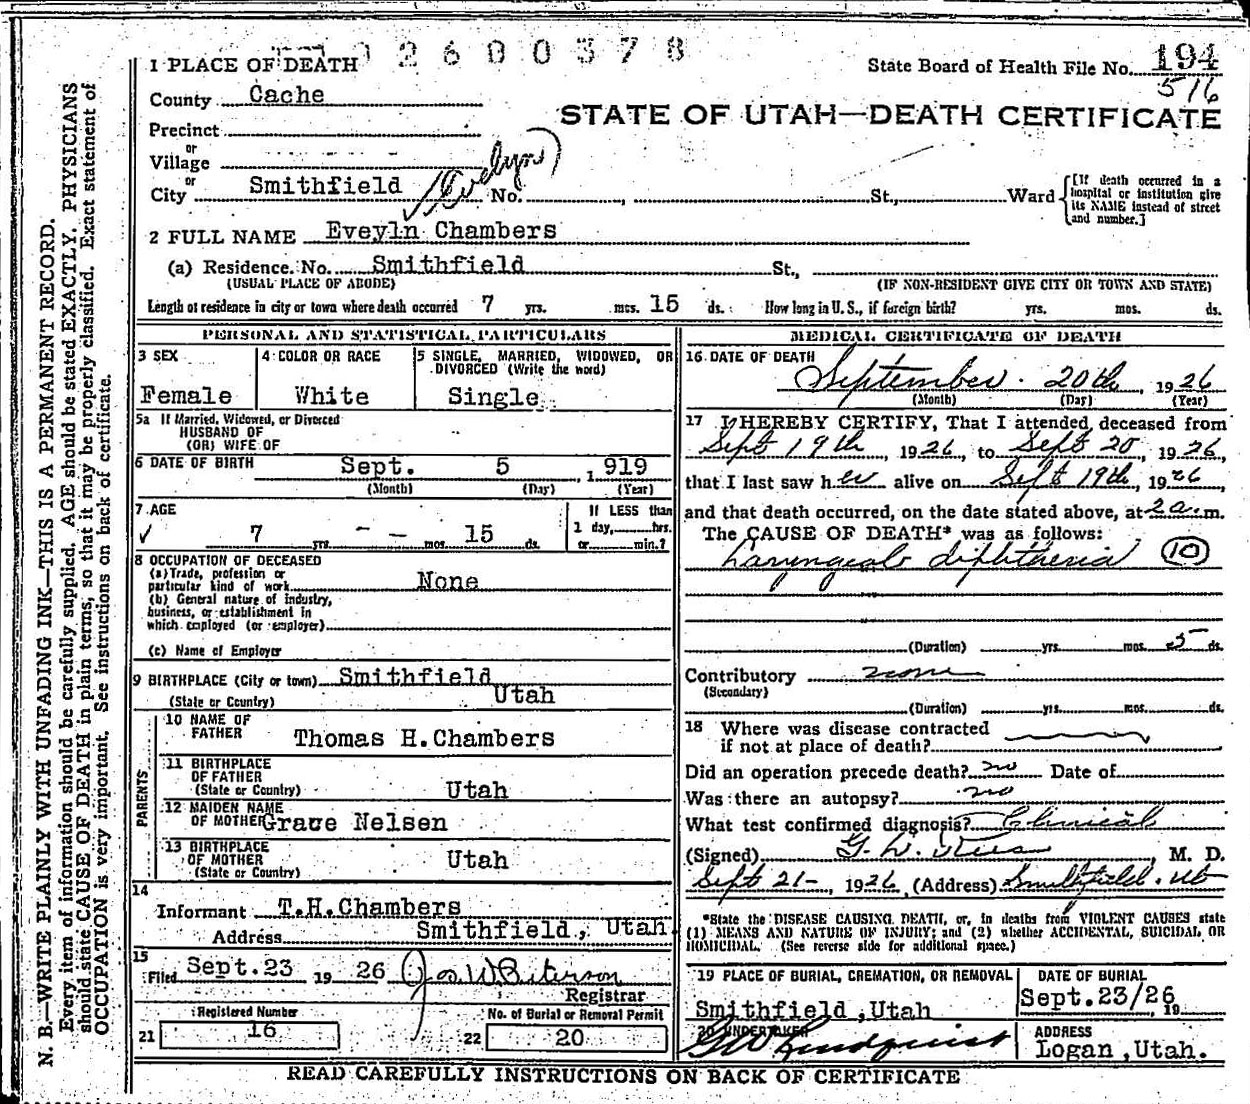 02600378
1 PLACE OF DEATH
State Board of Health File No. 194
516
County Cache
STATE OF UTAH—DEATH CERTIFICATE
Precinct
or
Village
or
City Smithfield (Evelyn) No. , St., Ward {[If death occurred in a hospital or institution give its NAME instead of street and number.]
2 FULL NAME Eveyln Chambers
(a) Residence. No. Smithfield St.,
(USUAL PLACE OF ABODE) (IF NON-RESIDENT GIVE CITY OR TOWN AND STATE)
Length of residence in city or town where death occurred 7 yrs. mos. 15 ds. How long in U.S., if foreign birth? yrs. mos. ds.
PERSONAL AND STATISTICAL PARTICULARS
3 SEX
Female
4 COLOR OR RACE
White
5 SINGLE, MARRIED, WIDOWED, OR
DIVORCED (Write the word)
Single
5a If Married, Widowed, or Divorced
HUSBAND OF
(OR) WIFE OF
6 DATE OF BIRTH Sept. 5 , 1919
(Month) (Day) (Year)
7 AGE
✓ 7 yrs. — — mos. 15 ds.
If LESS than
1 day, hrs.
or min.?
8 OCCUPATION OF DECEASED
(a) Trade, profession or
particular kind of work None
(b) General nature of industry,
business, or establishment in
which employed (or employer)
(c) Name of Employer
9 BIRTHPLACE (City or town) Smithfield
(State or Country) Utah
PARENTS
10 NAME OF
FATHER Thomas H.Chambers
11 BIRTHPLACE
OF FATHER
(State or Country) Utah
12 MAIDEN NAME
OF MOTHER Grace Nelsen
13 BIRTHPLACE
OF MOTHER
(State or Country) Utah
14
Informant T.H.Chambers
Address Smithfield, Utah
15
Filed Sept.23 19 26 Jos. W. Peterson
Registrar
Registered Number
21 16
No. of Burial or Removal Permit
22 20
MEDICAL CERTIFICATE OF DEATH
16 DATE OF DEATH
September 20th, 1926
(Month) (Day) (Year)
17 I HEREBY CERTIFY, That I attended deceased from
Sept 19th, 1926, to Sept 20, 1926,
that I last saw her alive on Sept 19th, 1926
and that death occurred, on the date stated above, at 2 a. m.
The CAUSE OF DEATH* was as follows:
Laryngeal diphtheria (10)
(Duration) yrs. mos. 5 ds.
Contributory none
(Secondary)
(Duration) yrs. mos. ds.
18 Where was disease contracted
if not at place of death?
Did an operation precede death? no Date of
Was there an autopsy? no
What test confirmed diagnosis? Clinical
(Signed) G. L. , M. D.
Sept 21- 1926 (Address) Smithfield. Ut
*State the DISEASE CAUSING DEATH, or, in deaths from VIOLENT CAUSES state
(1) MEANS AND NATURE OF INJURY; and (2) whether ACCIDENTAL, SUICIDAL OR
HOMICIDAL. (See reverse side for additional space.)
19 PLACE OF BURIAL, CREMATION, OR REMOVAL
Smithfield ,Utah
DATE OF BURIAL
Sept.23/26 19
20 UNDERTAKER
GW Lindquist
ADDRESS
Logan ,Utah.
READ CAREFULLY INSTRUCTIONS ON BACK OF CERTIFICATE
N. B.—WRITE PLAINLY WITH UNFADING INK—THIS IS A PERMANENT RECORD.
Every item of information should be carefully supplied. AGE should be stated EXACTLY. PHYSICIANS
should state CAUSE OF DEATH in plain terms, so that it may be properly classified. Exact statement of
OCCUPATION is very important. See instructions on back of certificate.